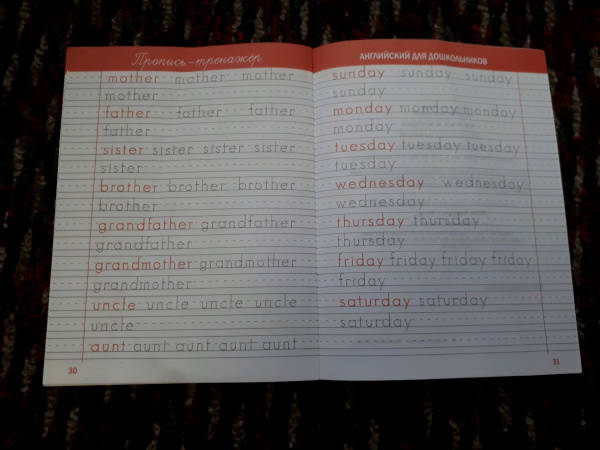 Пропись-тренажёр
mother mother mother
mother
father father father
father
sister sister sister sister
sister
brother brother brother
brother
grandfather grandfather
grandfather
grandmother grandmother
grandmother
uncle uncle uncle uncle
uncle
aunt aunt aunt aunt aunt
30
АНГЛИЙСКИЙ ДЛЯ ДОШКОЛЬНИКОВ
sunday sunday sunday
sunday
monday monday monday
monday
tuesday tuesday tuesday
tuesday
wednesday wednesday
wednesday
thursday thursday
thursday
friday friday friday friday
friday
saturday saturday
saturday
31